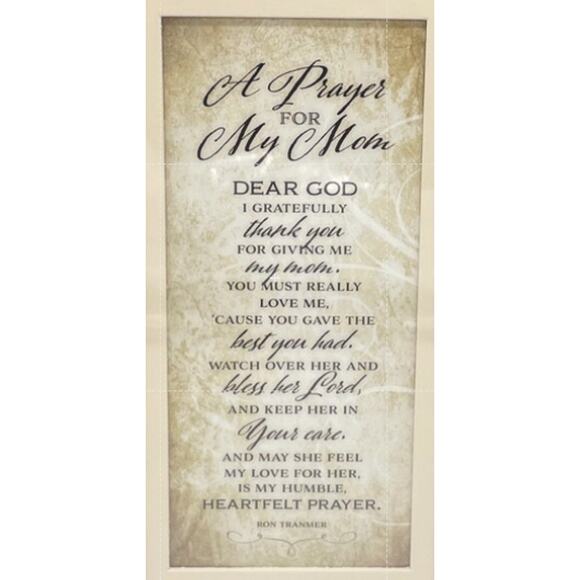 A Prayer
FOR
My Mom
DEAR GOD
I GRATEFULLY
thank you
FOR GIVING ME
my mom.
YOU MUST REALLY
LOVE ME,
'CAUSE YOU GAVE THE
best you had.
WATCH OVER HER AND
bless her Lord,
AND KEEP HER IN
Your care.
AND MAY SHE FEEL
MY LOVE FOR HER,
IS MY HUMBLE,
HEARTFELT PRAYER.
RON TRANMER